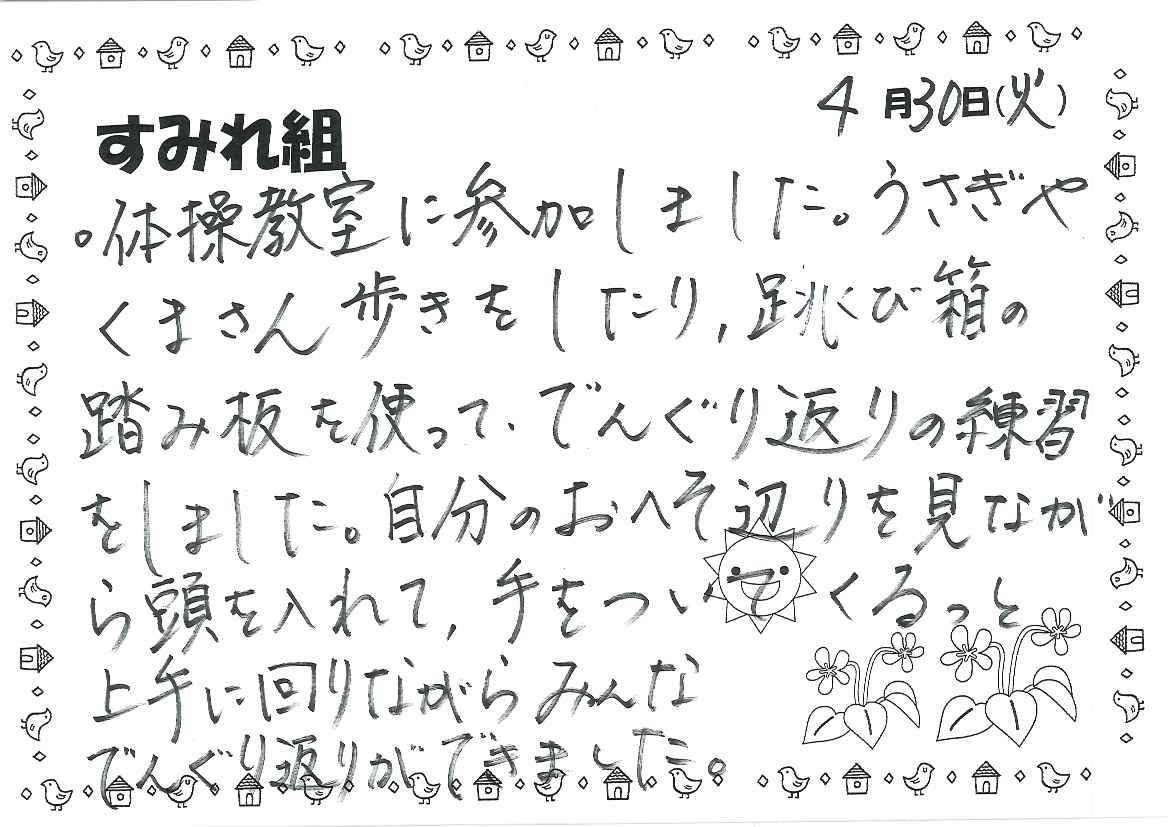 4月30日(火)
すみれ組
。体操教室に参加しました。うさぎや
くまさん歩きをしたり,跳び箱の
踏み板を使って、でんぐり返りの練習
をしました。自分のおへそ辺りを見なが
ら頭を入れて,手をついてくるっと
上手に回りながらみんな
でんぐり返りができました。